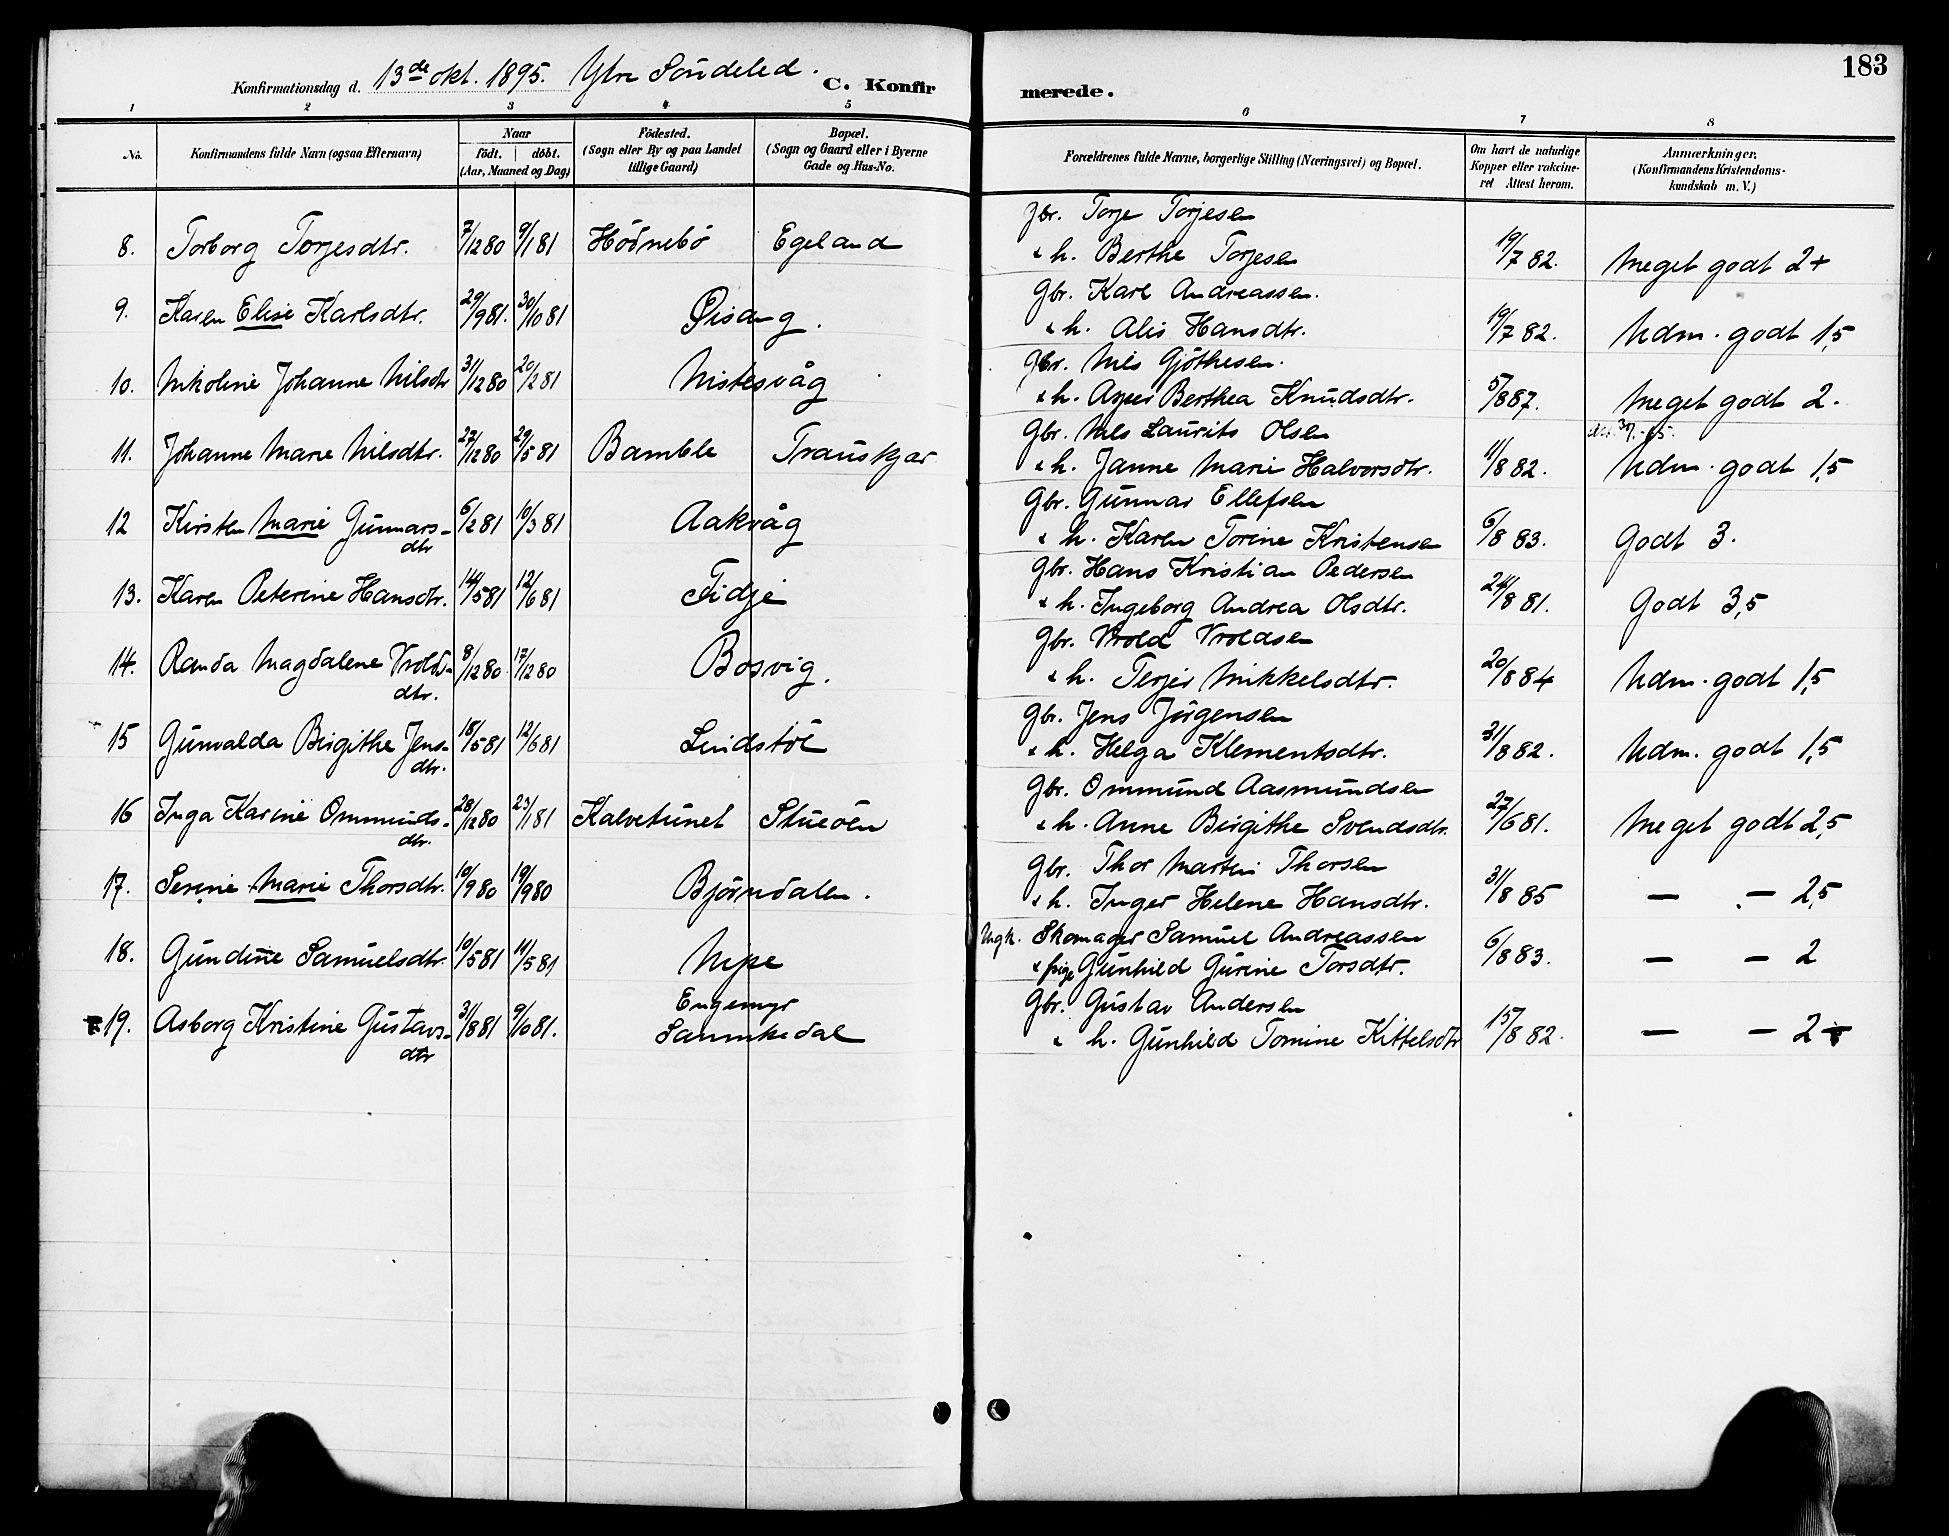 183
Konfirmationsdag d. 13de okt. 1895. Ytre Söndeled.
C. Konfirmerede.
1 2 3 4 5 6 7 8
No. Konfirmandens fulde Navn (ogsaa Efternavn) Naar födt. döbt. (Aar, Maaned og Dag) Födested. (Sogn eller By og paa Landet tillige Gaard) Bopæl. (Sogn og Gaard eller i Byerne Gade og Hus-No. Forældrenes fulde Navne, borgerlige Stilling (Næringsvei) og Bopæl. Om havt de naturlige Kopper eller vakcineret Attest herom. Anmærkninger. (Konfirmandens Kristendomskundskab m. V.)
Gbr. Torje Torjesen
8. Torborg Torjesdtr. 7/12 80 9/1 81 Hödnebö Egeland & h. Berthe Torjesen 19/7 82. Meget godt 2+
Gbr. Karl Andreassen.
9. Karen Elise Karlsdtr. 29/9 81. 30/10 81 Öisang. & h. Alis Hansdtr. 19/7 82. Udm. godt 1,5
Gbr. Nils Gjöthesen.
10. Nikoline Johanne Nilsdtr 31/12 80 20/2 81 Nistesvåg & h. Berthea Knudsdtr. 5/8 87. Meget godt 2.
Gbr. Nils Laurits Olsen
11. Johanne Marie Nilsdtr. 27/12 80 29/5 81 Bamble Trauskjær & h. Janne Marie Halvorsdtr. 11/8 82. Udm. godt 1,5
Gbr. Gunnar Ellefsen
12 Kirsten Marie Gunnars- 6/2 81 10/3 81 Aakvåg & h. Karen Torine Kristensen 6/8 83. Godt 3.
dtr
Gbr. Hans Kristian Pedersen
13. Karen Peterine Hansdtr. 14/5 81 12/6 81 Fidje & h. Ingeborg Andrea Olsdtr. 24/8 81. Godt 3,5
Gbr. Vrold Vroldsen
14. Randa Magdalene Vrolds- 8/12 80 17/12 80 Bosvig. & h. Terjer Mikkelsdtr. 20/8 84 Udm. godt 1,5
dtr.
Gbr. Jens Jörgensen
15 Gunvalda Birgithe Jens- 18/5 81 12/6 81 Lindstöl & h. Helga Klementsdtr. 31/8 82. Udm. godt 1,5
dtr.
Gbr. Ommund Aasmundsen
16 Inga Karine Ommunds- 28/12 80 23/1 81 Kalvetunet Stueöen & h. Anne Birgithe Svendsdtr. 27/6 81. Meget godt 2,5
dtr.
Gbr. Thor Martin Thorsen
17. Serine Marie Thorsdtr. 10/9 80 19/9 80 Björndalen. & h. Inger Helene Hansdtr. 31/8 85 — — 2,5
Ugk. Skomager Samuel Andreassen
18. Gundine Samuelsdtr. 10/5 81 11/5 81 Nipe & pige Gunhild Gurine Torsdtr. 6/8 83. — — 2
Engemyr Gbr. Gustav Andersen
19. Asborg Kristine Gustavs- 31/8 81 9/10 81. Sannikedal & h. Gunhild Tomine Kittelsdtr 15/8 82. — — 2+
dtr